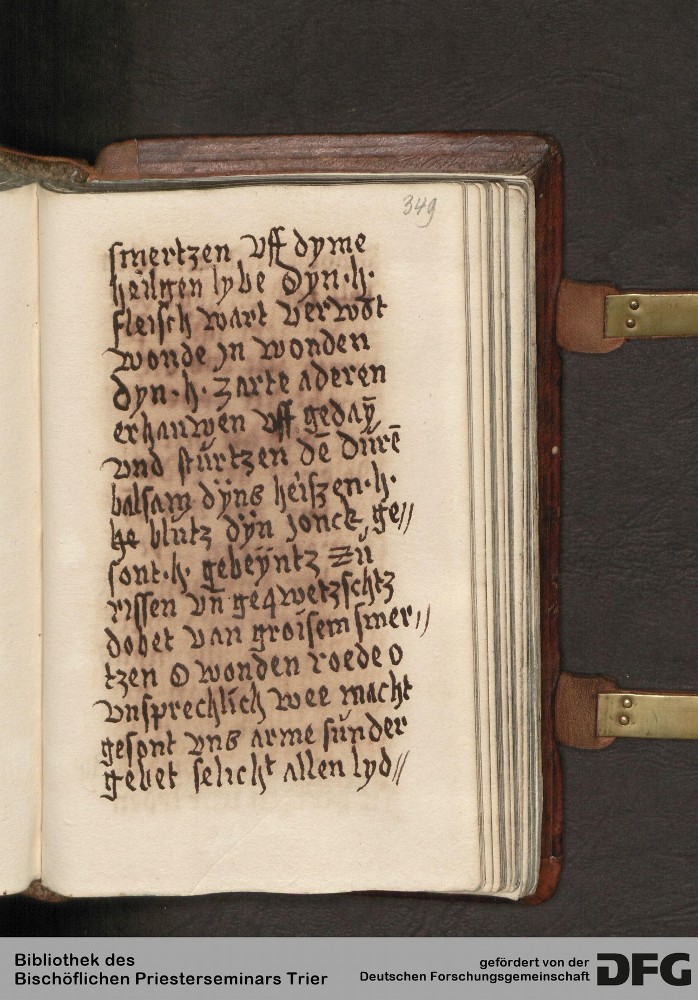 349
smertzen vff dyme
heilgen lybe Dyn·h·
fleisch wart verwöt
wonde jn wonden
dyn·h· zarte aderen
erhauwen vff gedaȳ
vnd stürtzen dē dürē
balsam dÿns heiszen·h·
blütz dÿn jonck ge//
sont·h· gebeÿntz zü
rissen vn̄ geqwetzschtz
dobet van groisem smer//
tzen O wonden roede o
vnsprechlich wee macht
gesont vns arme sünder
gebet selicht allen lyd//
Bibliothek des
Bischöflichen Priesterseminars Trier
gefördert von der
Deutschen Forschungsgemeinschaft
DFG